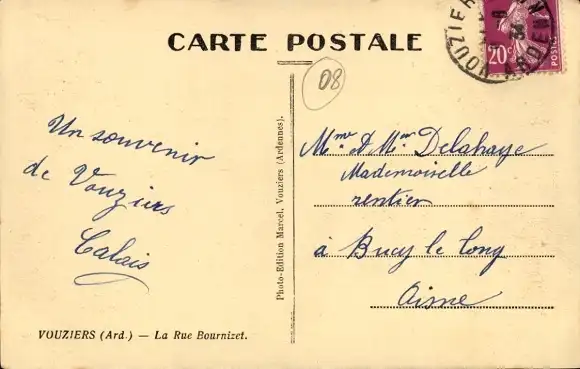 CARTE POSTALE
VOUZIERS ARDENN
8
34
20c
POSTES
08
Un souvenir
de Vouziers
Calais
Photo-Edition Marcel, Vouziers (Ardennes).
Mme et Mr Delahaye
Mademoiselle
rentier
à Bucy le long
Aisne
VOUZIERS (Ard.) — La Rue Bournizet.